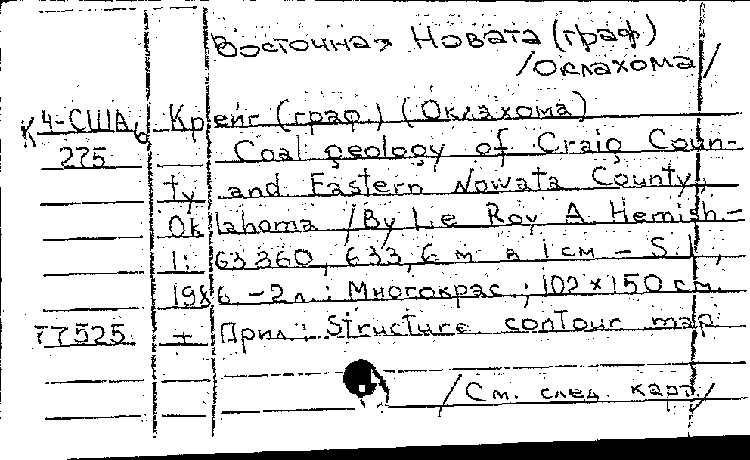 Восточная Новата (граф)
/Оклахома/
К 4-США 6 Крейг (граф.) (Оклахома)
275 Coal geology of Craig Coun-
ty and Eastern Nowata County,
Oklahoma /By Le Roy A. Hemish.-
1: 63360, 633,6 м в 1 см - S.l.,
1986 -2 л.: Многокрас.; 102×150 см.
77525 + Прил.: Structure contour map
/См. след. карт/